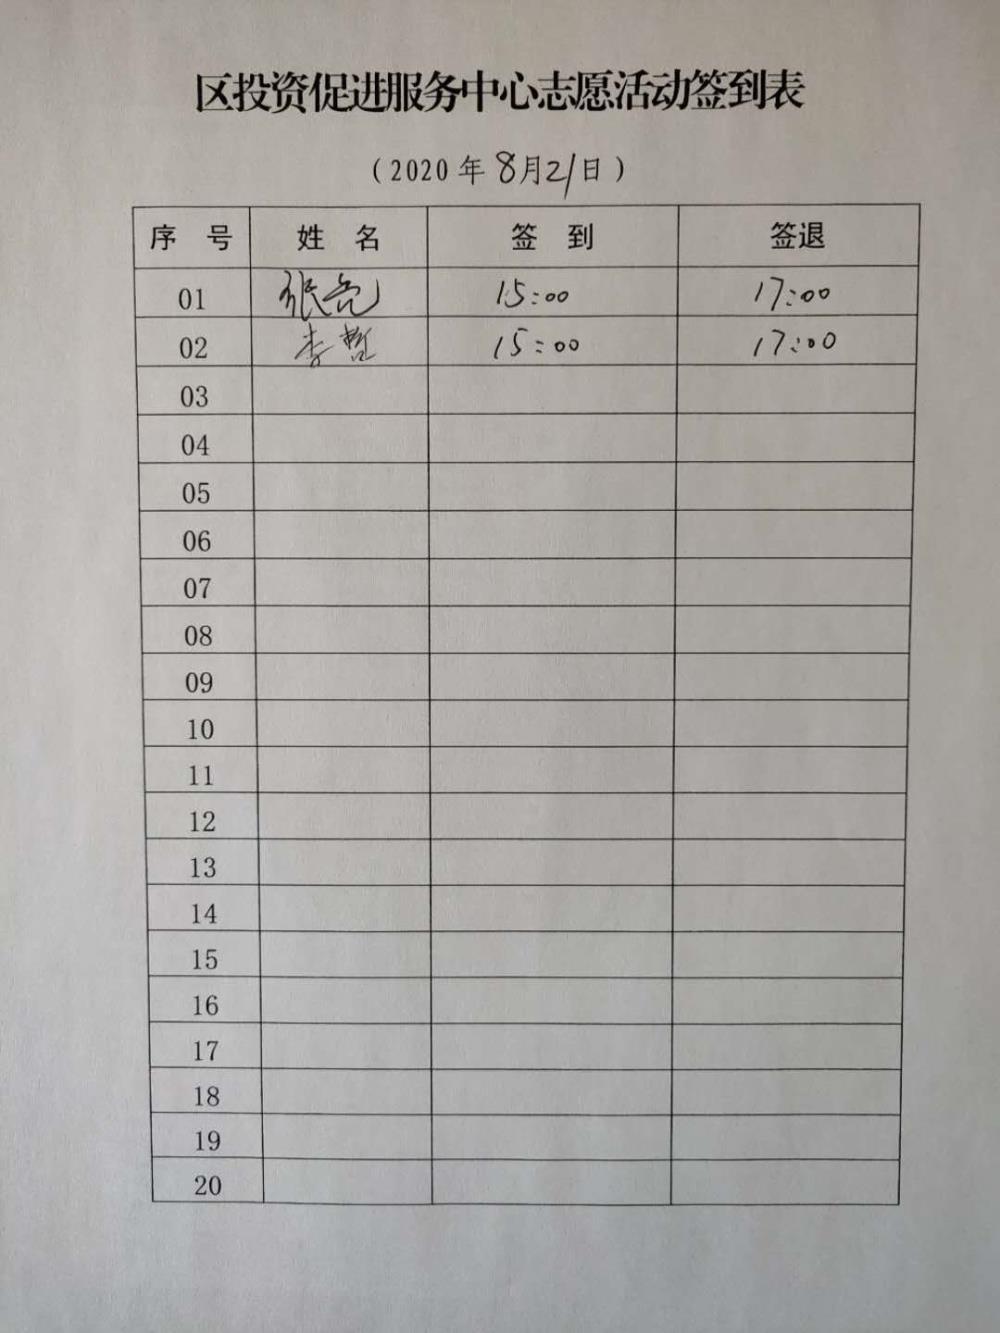 区投资促进服务中心志愿活动签到表
（2020年8月21日）
序 号 姓 名 签 到 签退
01 张亮 15:00 17:00
02 李哲 15:00 17:00
03
04
05
06
07
08
09
10
11
12
13
14
15
16
17
18
19
20